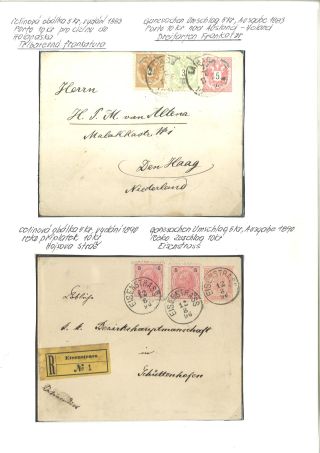 Celinová obálka 5 kr, vydání 1883
Porto 10 kr pro cizinu do
Holandska
Tříbarevná frankatura
Ganzsachen Umschlag 5 Kr, Ausgabe 1883
Porto 10 kr nach Ausland - Holand
Dreifarben Frankatur
5
H. P. M. van Altena
Malakkastr
Den Haag
Niederland
Celinová obálka 5 kr, vydání 1890
reko příplatek 10 kr
Hojsova stráž
Ganzsachen Umschlag 5 Kr, Ausgabe 1890
Reko Zuschlag 10 kr
Eisenstrass
5
5
5
EISENSTRASS
EISENSTRASS
EISENSTRASS
Löbliche
k. k. Bezirkshauptmannschaft
in
Schüttenhofen
R
Eisenstrass
№ 1